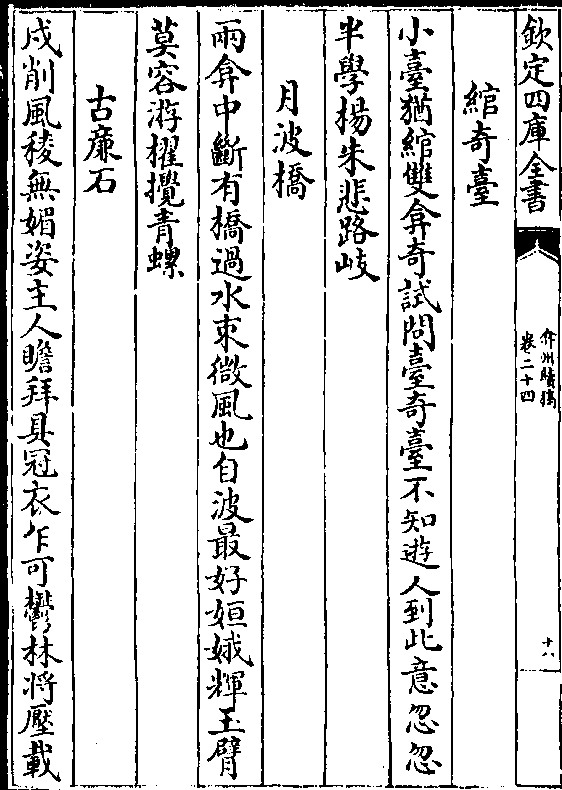 欽定四庫全書
弇州續稿
卷二十四
十八
綰奇臺
小臺猶綰雙弇奇試問臺奇臺不知遊人到此意忽忽
半學楊朱悲路岐
月波橋
兩弇中斷有橋過水束微風也自波最好姮娥輝玉臂
莫容游櫂攪青螺
古廉石
戍削風稜無媚姿主人瞻拜具冠衣乍可鬱林將壓載